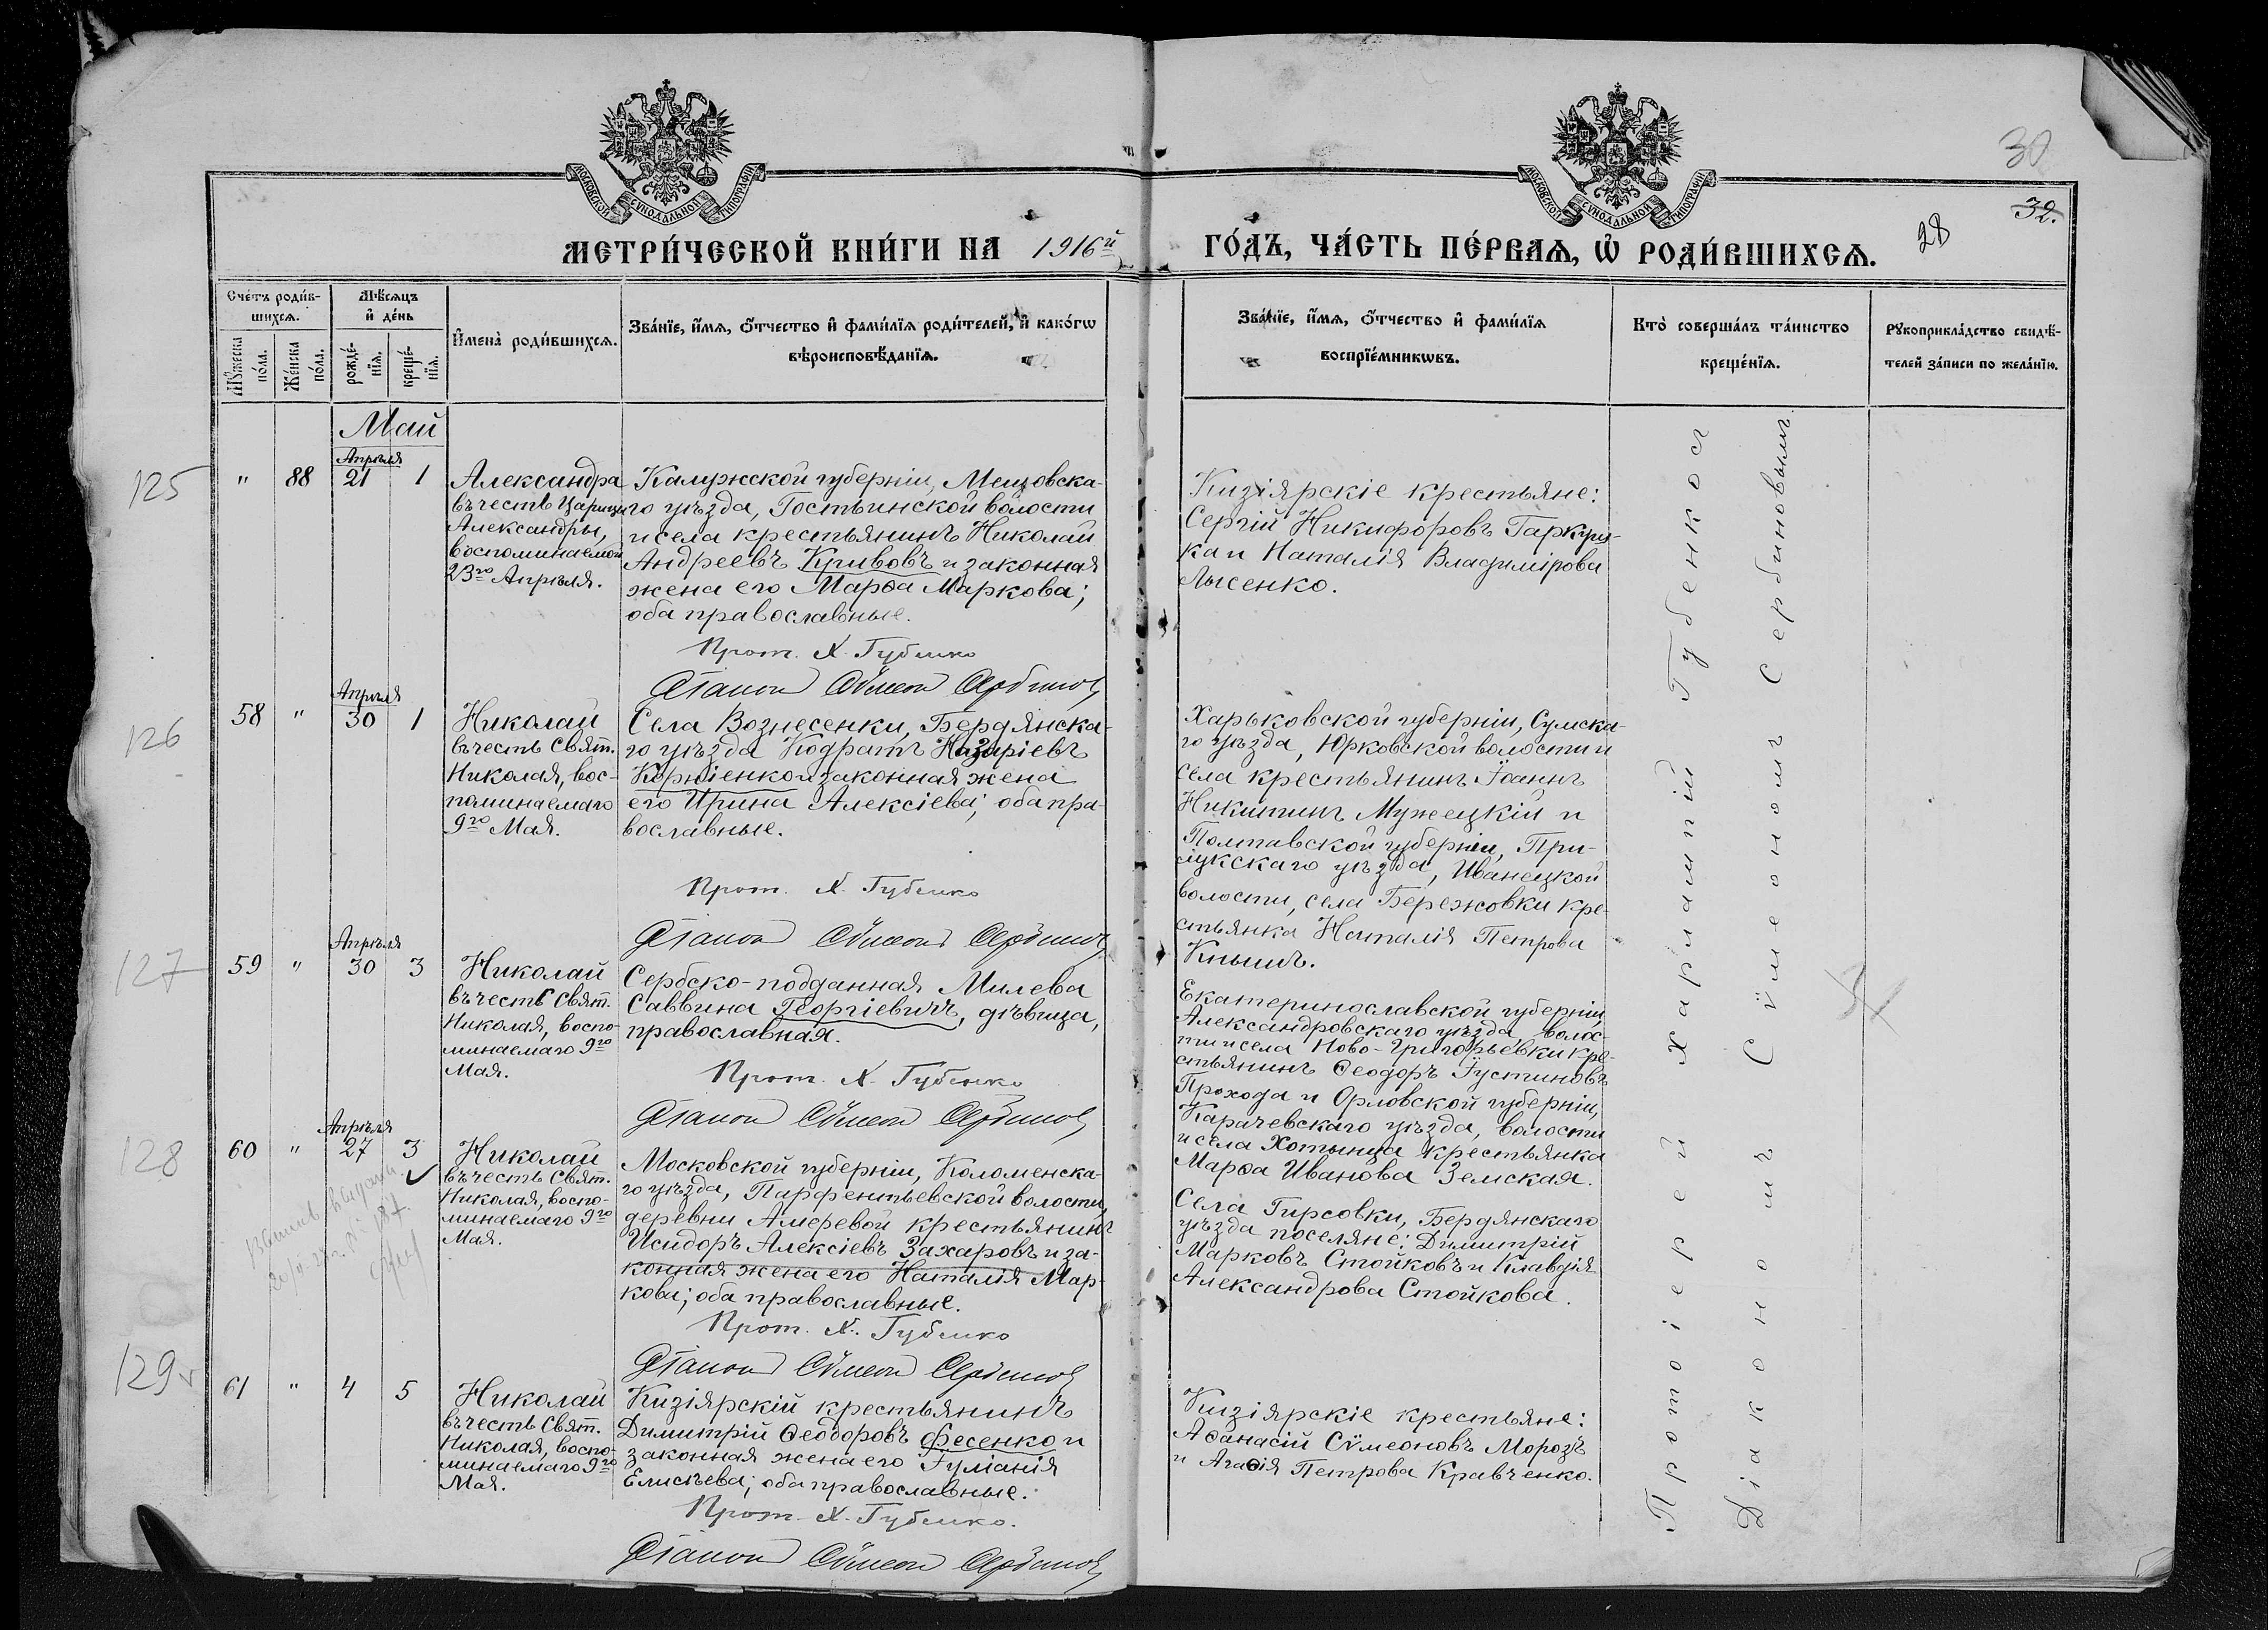 МОСКОВСКОЙ СУНОДАЛЬНОЙ ТИПОГРАФІИ
МОСКОВСКОЙ СУНОДАЛЬНОЙ ТИПОГРАФІИ
30
32.
28
МЕТРИ́ЧЕСКОЙ КНИ́ГИ НА 1916й
ГО́ДЪ, ЧА́СТЬ ПЕ́РВАѦ, Ѡ҆ РОДИ́ВШИХСѦ.
Сче́тъ роди́в-
шихсѧ.
Мꙋ́жеска
по́ла.
Же́нска
по́ла.
Мѣ́сѧцъ
и҆ де́нь
рожде́-
нїѧ.
креще́-
нїѧ.
И҆мена̀ роди́вшихсѧ.
Зва́нїе, и҆́мѧ, ѻ҆́тчество и҆ фами́лїѧ роди́телей, и҆ како́гѡ
вѣроисповѣ́данїѧ.
Зва́нїе, и҆́мѧ, ѻ҆́тчество и҆ фами́лїѧ
воспрїе́мникѡвъ.
Кто̀ соверша́лъ та́инство
креще́нїѧ.
Рꙋкоприкла́дство свидѣ́-
телей за́писи по жела́нїю.
Май
125
" 88
Апрѣля
21 1
Александра
въ честь Царицы
Александры,
воспоминаемой
23го Апрѣля.
Калужской губерніи, Мещовска-
го уѣзда, Гостьинской волости
и села крестьянинъ Николай
Андреевъ Кривовъ и законная
жена его Марѳа Маркова;
оба православные.
Прот. Х. Губенко
Діаконъ Сѵмеонъ Сербиновъ
Кизіярскіе крестьяне:
Сергій Никифоровъ Гаркуш-
ка и Наталія Владимірова
Лысенко.
126
58 "
Апрѣля
30 1
Николай
въ честь Свят.
Николая, вос-
поминаемаго
9го Мая.
Села Вознесенки, Бердянска-
го уѣзда Кодратъ Назаріевъ
Корніенко и законная жена
его Ирина Алексіева; оба пра-
вославные.
Прот. Х. Губенко
Діаконъ Сѵмеонъ Сербиновъ
Харьковской губерніи, Сумска-
го уѣзда, Юрковской волости и
села крестьянинъ Іоаннъ
Никитинъ Мужецкій и
Полтавской губерніи, При-
лукскаго уѣзда, Иванецкой
волости, села Бережовки кре-
стьянка Наталія Петрова
Кнышъ.
127
59 "
Апрѣля
30 3
Николай
въ честь Свят.
Николая, воспо-
минаемаго 9го
Мая.
Сербско-подданная Милева
Саввина Георгіевичъ, дѣвица,
православная.
Прот. Х. Губенко
Діаконъ Сѵмеонъ Сербиновъ
Екатеринославской губерніи,
Александровскаго уѣзда, волос-
ти и села Ново-Григорьевки кре-
стьянинъ Ѳеодоръ Іустиновъ
Прохода и Орловской губерніи,
Карачевскаго уѣзда, волости
и села Хотынца крестьянка
Марѳа Иванова Земская.
128
60 "
Апрѣля
27 3
Николай
въ честь Свят.
Николая, воспо-
минаемаго 9го
Мая.
Московской губерніи, Коломенска-
го уѣзда, Парфентьевской волости,
деревни Амеревой крестьянинъ
Исидоръ Алексіевъ Захаровъ и за-
конная жена его Наталія Мар-
кова; оба православные.
Прот. Х. Губенко
Діаконъ Сѵмеонъ Сербиновъ
Села Гирсовки, Бердянскаго
уѣзда поселяне: Димитрій
Марковъ Стойковъ и Клавдія
Александрова Стойкова.
129
61 " 4 5
Николай
въ честь Свят.
Николая, воспо-
минаемаго 9го
Мая.
Кизіярскій крестьянинъ
Димитрій Ѳеодоровъ Фесенко и
законная жена его Іуліанія
Елисѣева; оба православные.
Прот. Х. Губенко.
Діаконъ Сѵмеонъ Сербиновъ
Кизіярскіе крестьяне:
Аѳанасій Сѵмеоновъ Морозъ
и Агаѳія Петрова Кравченко.
Протоіерей Харлампій Губенко съ
Діакономъ Сѵмеономъ Сербиновымъ